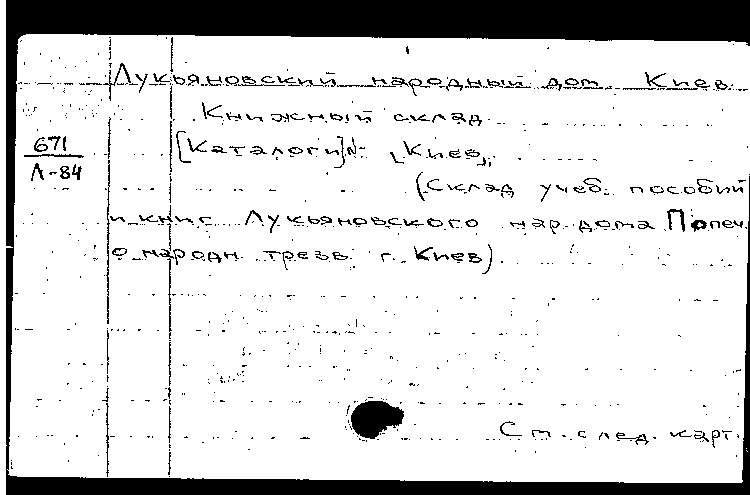 Лукьяновский народный дом. Киев.
Книжный склад
671
Л-84
[Каталоги]. [Киев],
(Склад учеб. пособий
и книг Лукьяновского нар. дома Попеч.
о народн. трезв. г. Киев).
См. след. карт.